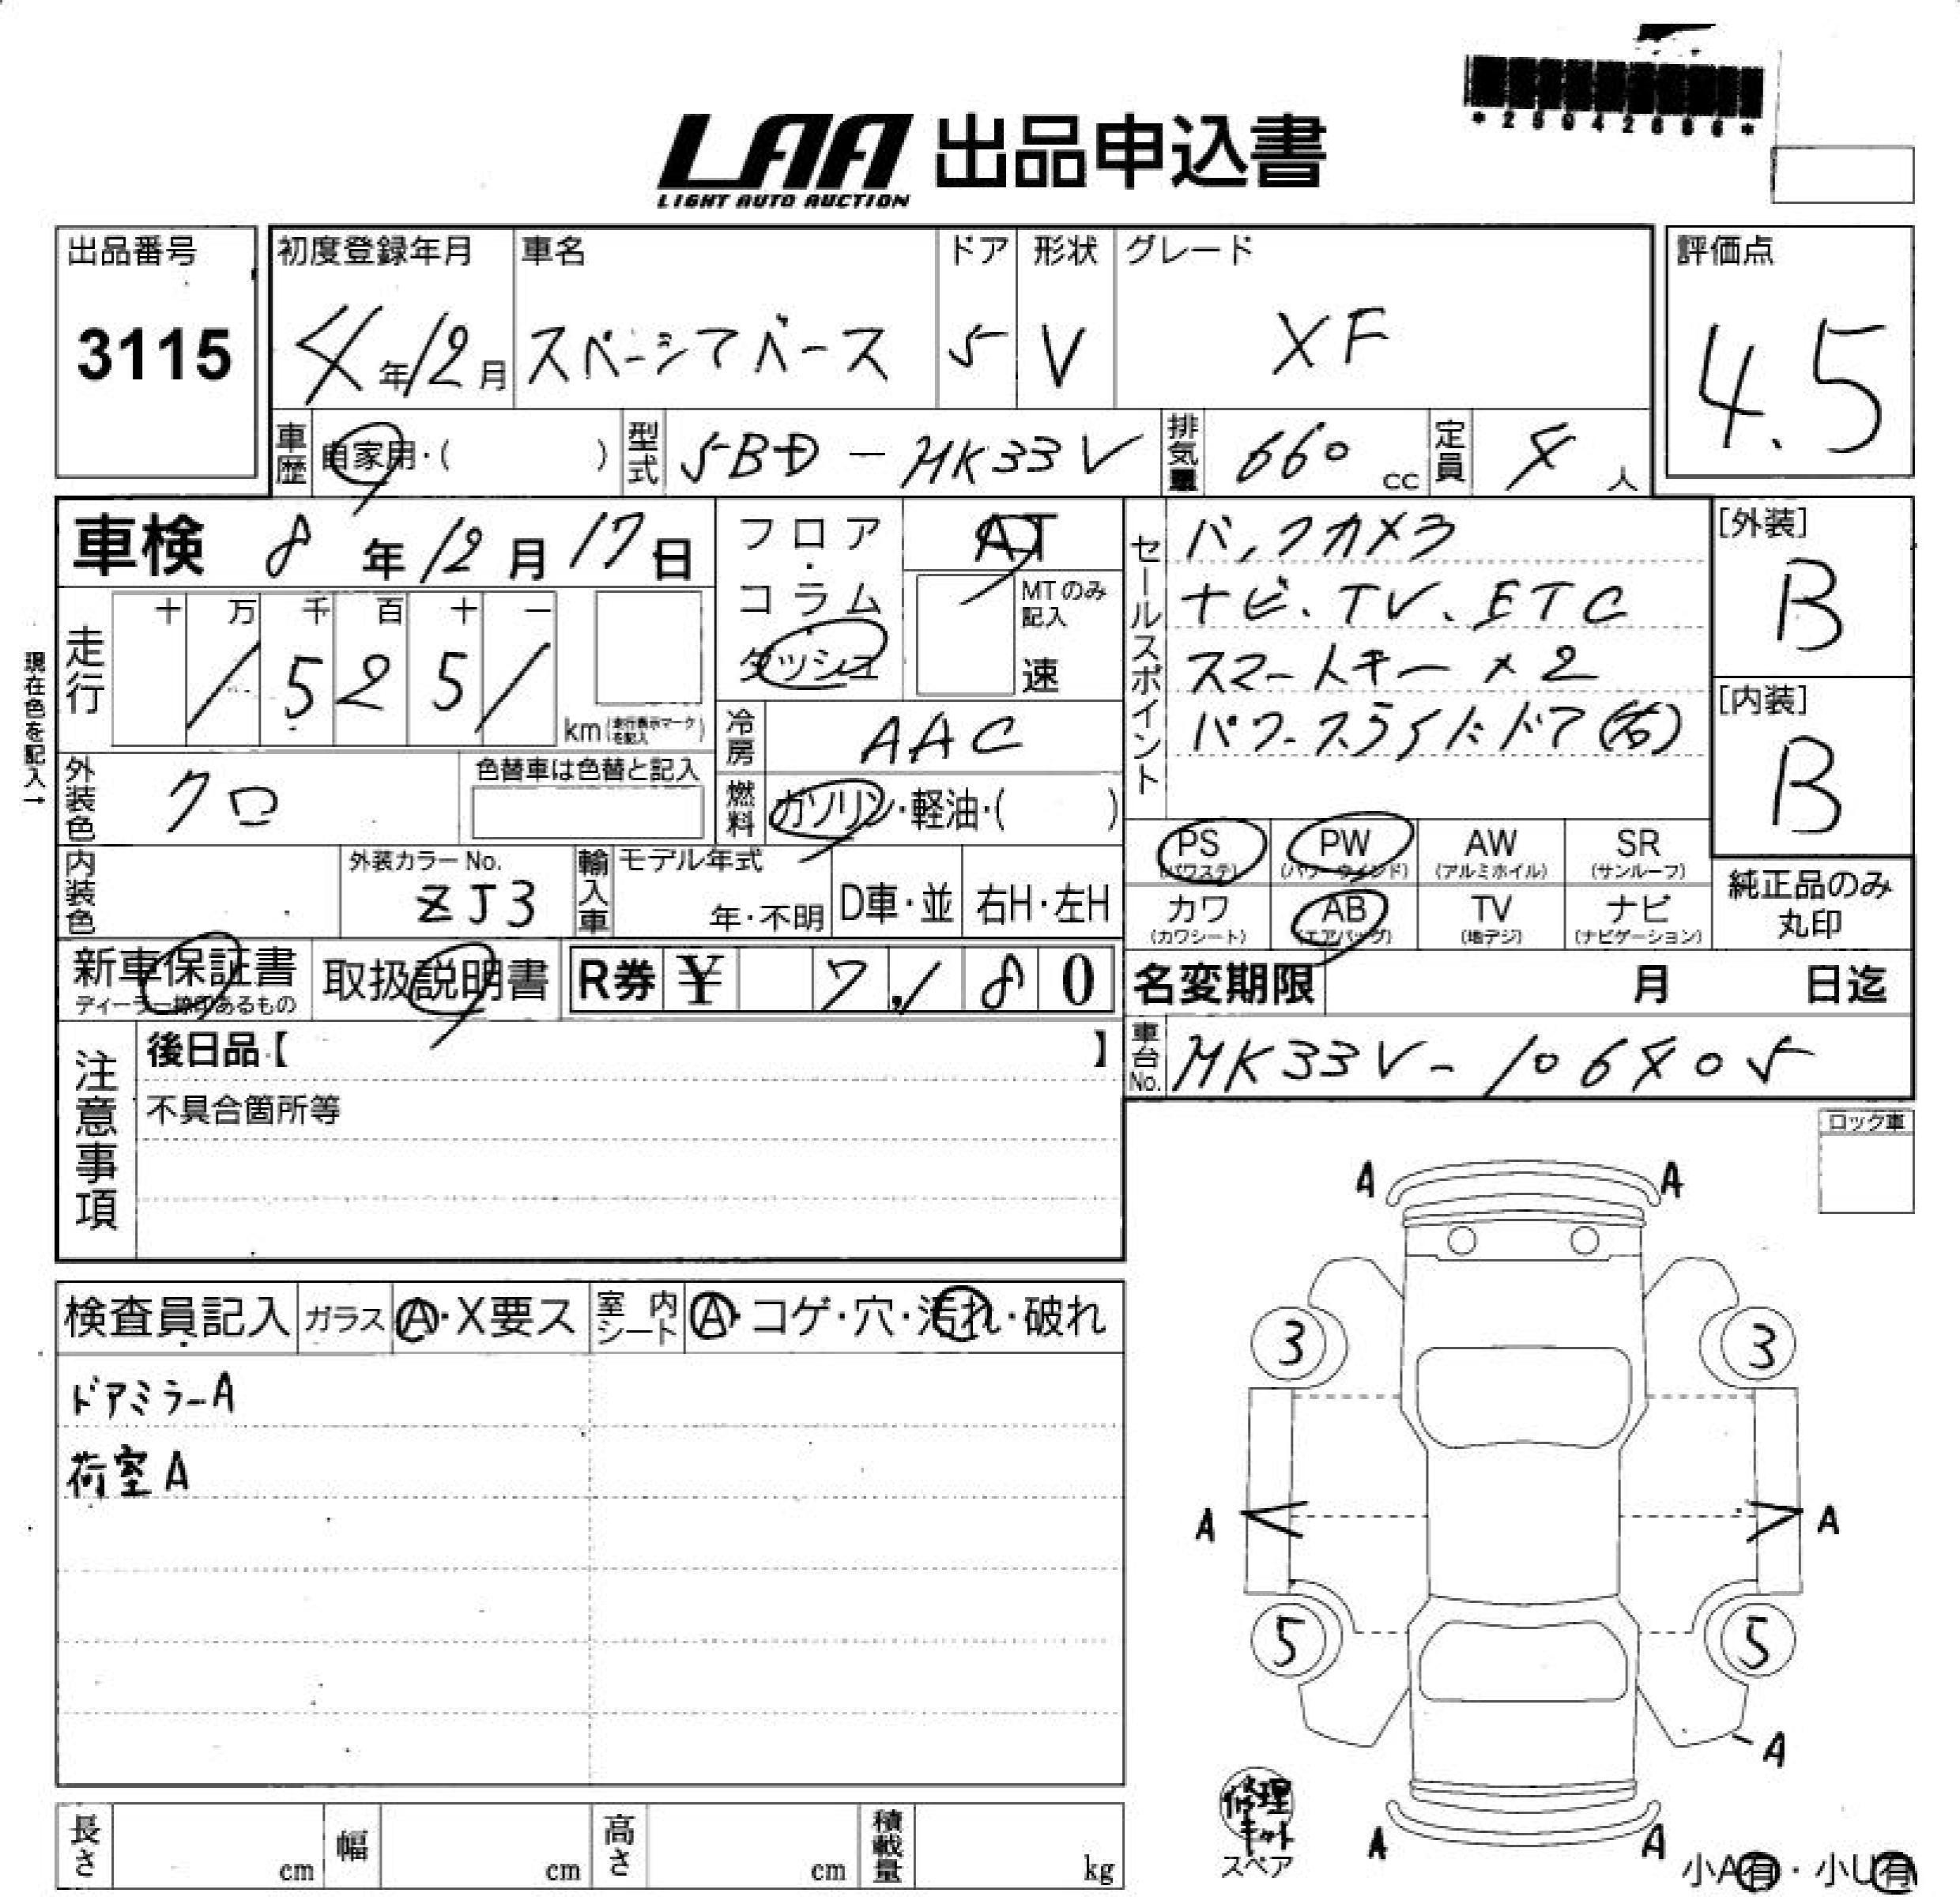 *25042666*
LAA 出品申込書
LIGHT AUTO AUCTION
出品番号 初度登録年月 車名 ドア 形状 グレード 評価点
3115 4年12月 スペーシアベース 5 V XF 4.5
車歴 自家用・( ) 型式 5BD-MK33V 排気量 660 cc 定員 4 人
車検 8年12月17日 フロア・コラム・ダッシュ AT
MTのみ記入 速
セールスポイント
バックカメラ
ナビ、TV、ETC
スマートキー×2
パワースライドドア(右)
[外装] B
[内装] B
現在色を記入→
走行 十 万 千 百 十 一
1 5 2 5 1 km (走行表示マークを記入)
冷房 AAC
外装色 クロ 色替車は色替と記入
燃料 ガソリン・軽油・( )
PS (パワステ) PW (パワーウィンド) AW (アルミホイル) SR (サンルーフ)
内装色 外装カラーNo. ZJ3 輸入車 モデル年式 年・不明 D車・並 右H・左H
カワ (カワシート) AB (エアバッグ) TV (地デジ) ナビ (ナビゲーション)
純正品のみ丸印
新車保証書 ディーラー捺印あるもの 取扱説明書 R券 ¥ 7,180
名変期限 月 日迄
車台No. MK33V-106405
注意事項
後日品【 】
不具合箇所等
ロック車
検査員記入 ガラス A・X要ス 室内シート A・コゲ・穴・汚れ・破れ
ドアミラーA
荷室A
A A
3 3
A A
5 5
A
A A
修理キット
スペア
小A有・小U有
長さ cm 幅 cm 高さ cm 積載量 kg